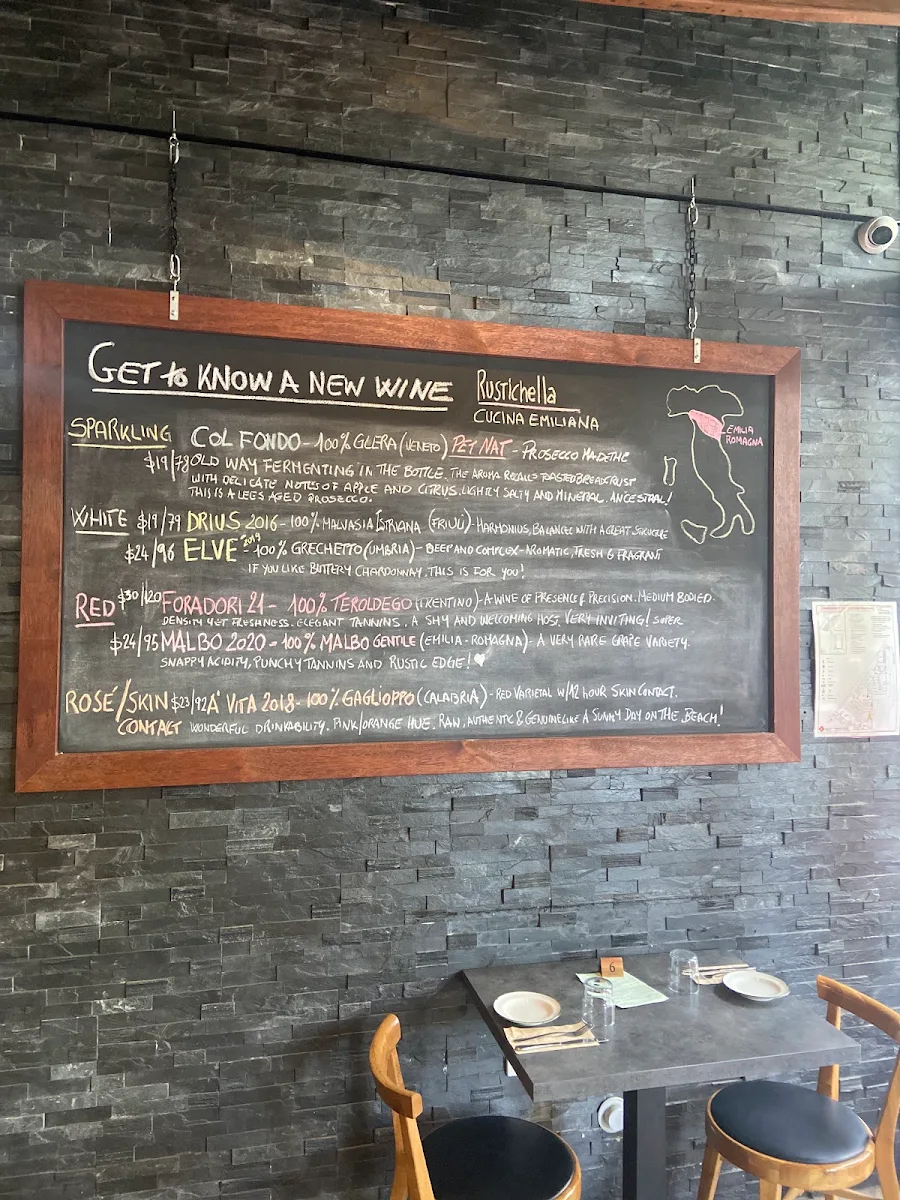 GET to KNOW A NEW WINE
Rustichella
CUCINA EMILIANA
EMILIA
ROMAGNA
SPARKLING COL FONDO - 100% GLERA (VENETO) PET NAT - PROSECCO MADE THE
$19/78 OLD WAY FERMENTING IN THE BOTTLE. THE AROMA RECALLS TOASTED BREAD CRUST
WITH DELICATE NOTES OF APPLE AND CITRUS. LIGHTLY SALTY AND MINERAL. ANCESTRAL!
THIS IS A LEES AGED PROSECCO.
WHITE $19/79 DRIUS 2016 - 100% MALVASIA ISTRIANA (FRIULI) - HARMONIUS, BALANCED WITH A GREAT STRUCTURE
$24/96 ELVE 2019 - 100% GRECHETTO (UMBRIA) - DEEP AND COMPLEX - AROMATIC, FRESH & FRAGRANT
IF YOU LIKE BUTTERY CHARDONNAY. THIS IS FOR YOU!
RED $30/120 FORADORI 21 - 100% TEROLDEGO (TRENTINO) - A WINE OF PRESENCE & PRECISION. MEDIUM BODIED.
DENSITY YET FRESHNESS. ELEGANT TANNINS. A SHY AND WELCOMING HOST, VERY INVITING! SUPER
$24/95 MALBO 2020 - 100% MALBO GENTILE (EMILIA-ROMAGNA) - A VERY RARE GRAPE VARIETY.
SNAPPY ACIDITY, PUNCHY TANNINS AND RUSTIC EDGE!
ROSÉ/SKIN $23/92 A' VITA 2018 - 100% GAGLIOPPO (CALABRIA) - RED VARIETAL W/12 HOUR SKIN CONTACT.
CONTACT WONDERFUL DRINKABILITY. PINK/ORANGE HUE. RAW, AUTHENTIC & GENUINE LIKE A SUNNY DAY ON THE BEACH!
6